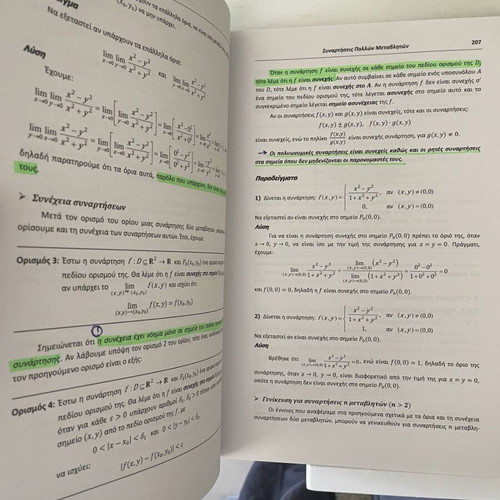 (x₀,y₀) να μην υπάρχει.
Να εξεταστεί αν υπάρχουν τα επάλληλα όρια:
Λύση
lim lim x²−y² / x²+y² και lim lim
x→0 y→0
Έχουμε:
δηλαδή παρατηρούμε ότι τα όρια αυτά, παρόλο που υπάρχουν, δεν είναι
τους.
➢ Συνέχεια συναρτήσεων
Μετά τον ορισμό του ορίου μιας συνάρτησης δύο μεταβλητών,
ορίσουμε και τη συνέχεια των συναρτήσεων αυτών. Έτσι, έχουμε:
Ορισμός 3: Έστω η συνάρτηση f : D ⊆ ℝ² → ℝ και P₀(x₀,y₀) ένα σημείο
πεδίου ορισμού της. Θα λέμε ότι η f είναι συνεχής στο σημείο
αν υπάρχει το lim f(x,y) και ισχύει ότι:
(x,y)→(x₀,y₀)
lim f(x,y) = f(x₀,y₀)
(x,y)→(x₀,y₀)
Σημειώνεται ότι η συνέχεια έχει νόημα μόνο σε σημεία του πεδίου
συνάρτησης. Αν λάβουμε υπόψη τον ορισμό 2 του ορίου, τότε ένας
τον προηγούμενο ορισμό είναι ο εξής:
Ορισμός 4: Έστω η συνάρτηση f : D ⊆ ℝ² → ℝ και P₀(x₀,y₀) ένα
πεδίου ορισμού της. Θα λέμε ότι η f είναι συνεχής στο
όταν για κάθε ε > 0 υπάρχουν αριθμοί δ₁, δ₂ > 0
σημείο (x,y) από το πεδίο ορισμού της f, με
0 < |x − x₀| < δ₁ και 0 < |y − y₀| < δ₂
να ισχύει: |f(x,y) − f(x₀,y₀)| < ε
Συναρτήσεις Πολλών Μεταβλητών 207
Όταν η συνάρτηση f είναι συνεχής σε κάθε σημείο του πεδίου ορισμού της D,
τότε λέμε ότι η f είναι συνεχής. Αν αυτό συμβαίνει σε κάθε σημείο ενός υποσυνόλου A
του D, τότε λέμε ότι η f είναι συνεχής στο A. Αν η συνάρτηση f δεν είναι συνεχής σ'
ένα σημείο του πεδίου ορισμού της, τότε λέγεται ασυνεχής στο σημείο αυτό και το
συγκεκριμένο σημείο λέγεται σημείο ασυνέχειας της f.
Αν οι συναρτήσεις f(x,y) και g(x,y) είναι συνεχείς, τότε και οι συναρτήσεις:
f(x,y) ± g(x,y), f(x,y) · g(x,y)
είναι συνεχείς, ενώ το πηλίκο f(x,y)/g(x,y) είναι συνεχής συνάρτηση, για g(x,y) ≠ 0.
→ Οι πολυωνυμικές συναρτήσεις είναι συνεχείς καθώς και οι ρητές συναρτήσεις
στα σημεία όπου δεν μηδενίζονται οι παρονομαστές τους.
Παραδείγματα
1) Δίνεται η συνάρτηση: f(x,y) = { x²−y² / 1+x²+y², αν (x,y) ≠ (0,0)
0, αν (x,y) = (0,0)
Να εξεταστεί αν είναι συνεχής στο σημείο P₀(0,0).
Λύση
Για να είναι η συνάρτηση συνεχής στο σημείο P₀(0,0) πρέπει το όριό της, όταν
x → 0, y → 0, να είναι ίσο με την τιμή της συνάρτησης για x = y = 0. Πράγματι,
έχουμε:
lim (x,y)→(0,0) x²−y² / 1+x²+y² = lim (x,y)→(0,0) (x²−y²) / lim (x,y)→(0,0) (1+x²+y²) = 0²−0² / 1+0²+0² = 0
και f(0,0) = 0, δηλαδή η f είναι συνεχής στο σημείο P₀(0,0).
2) Δίνεται η συνάρτηση: f(x,y) = { x²−y² / 1+x²+y², αν (x,y) ≠ (0,0)
1, αν (x,y) = (0,0)
Να εξεταστεί αν είναι συνεχής στο σημείο P₀(0,0).
Λύση
Βρέθηκε ότι lim (x,y)→(0,0) x²−y² / 1+x²+y² = 0, ενώ είναι f(0,0) = 1, δηλαδή το όριο της
συνάρτησης, όταν x → 0, y → 0, είναι διαφορετικό από την τιμή της για x = y = 0,
οπότε η συνάρτηση δεν είναι συνεχής στο σημείο P₀(0,0).
➢ Γενίκευση για συναρτήσεις n μεταβλητών (n > 2)
Οι έννοιες που αναφέραμε στα προηγούμενα σχετικά με τα όρια και τη συνέχεια
συναρτήσεων δύο μεταβλητών, μπορούν να γενικευθούν για συναρτήσεις n μεταβλη-